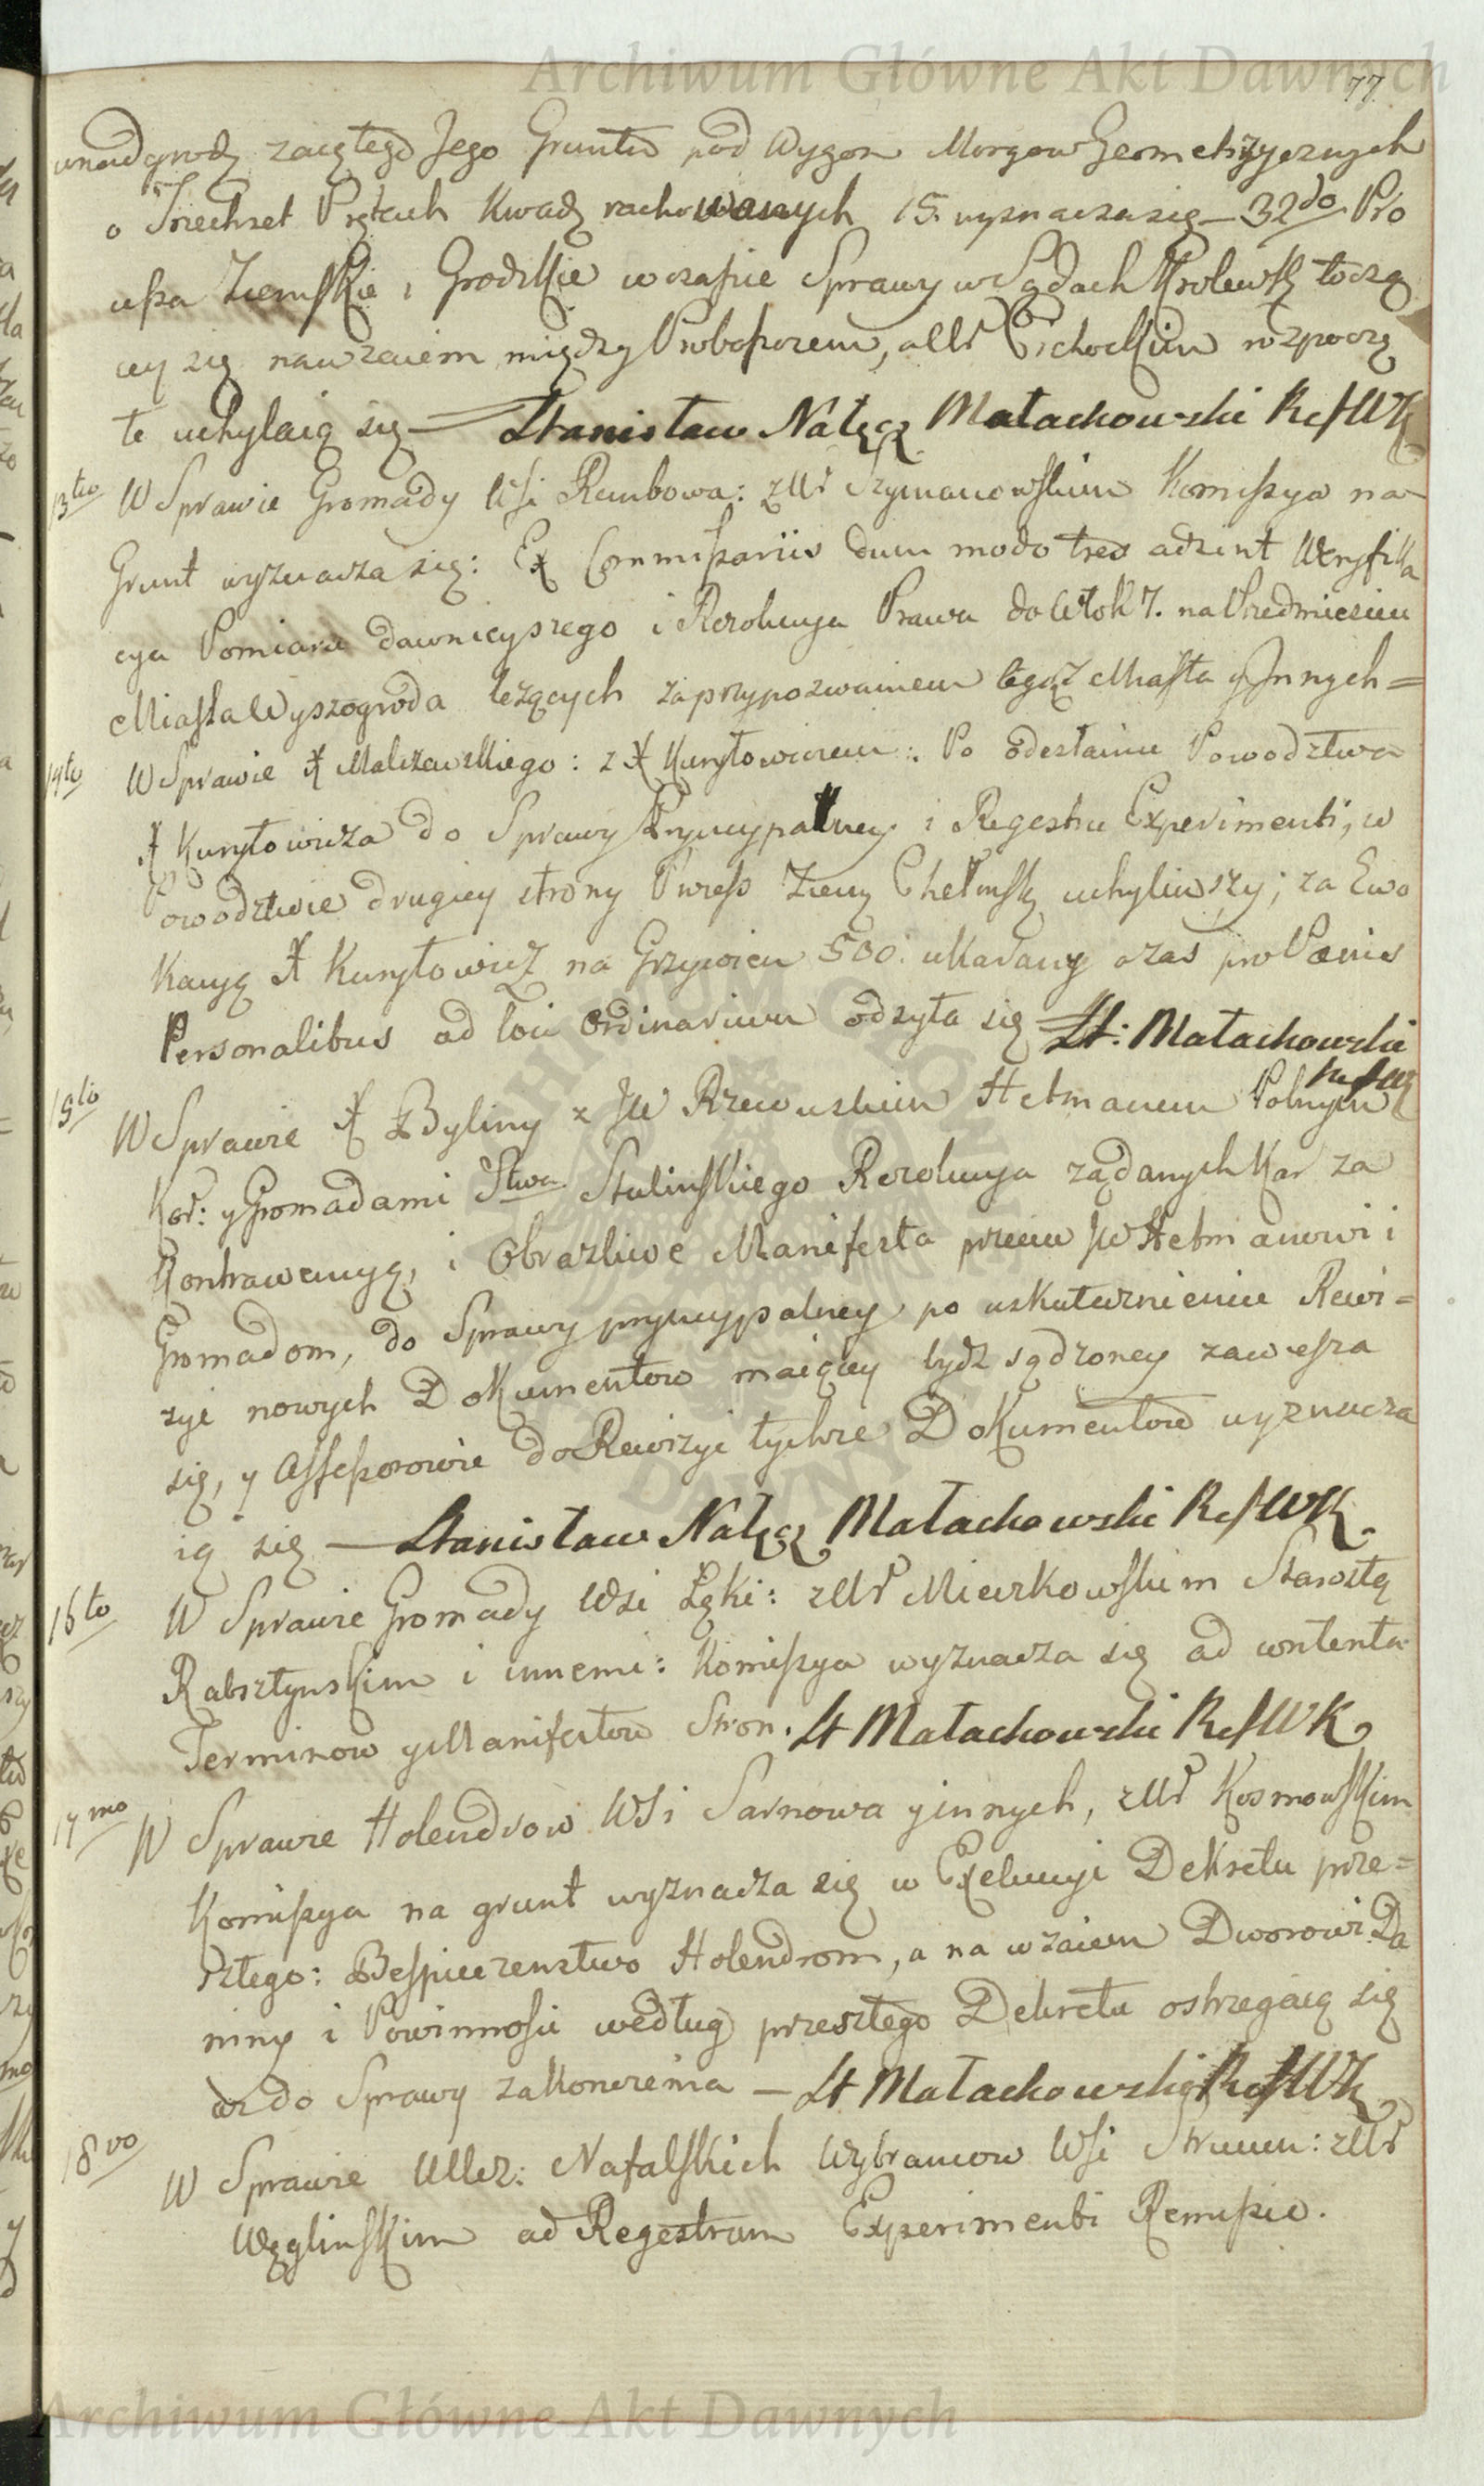 Archiwum Główne Akt Dawnych
77
unadgrodz zaiętego Jego Gruntu pod Wygon Morgow Geometrzycznych
o Trzechset Prętach Kwadr rachowanych 15. wyznacza się — 32do Pro
cessa Ziemskie i Grodzkie w czasie Sprawy w Sądach Krolewsk toczą
cey się nawzaiem między Proboszczem, a Ur Cichockim rozpoczę
te uchylaią się — Stanisław Nałęcz Małachowski RefWK
13tio W Sprawie Gromady Wsi Rembowa: z Ur Szymanowskim Komissya na
Grunt wyznacza się: Ex Commissariis dum modo tres adsint Weryfika
cya Pomiaru dawnieyszego i Rezolucya Prawa do Włok 7. na Przedmieściu
Miasta Wyszogroda leżących za przypozwaniem tegoż Miasta y Innych =
14to W Sprawie X Malczewskiego: z X Kuryłowiczem: Po odesłaniu Powodztwa
X Kuryłowicza do Sprawy Pryncypalney i Regestru Experimenti, w
Powodztwie drugiey strony Process Ziem Chełmsk uchyliwszy; za Ewo
kacyą X Kuryłowicz na Grzywien 500. ukarany oraz pro Pœnis
Personalibus ad loci Ordinarium odsyła się St: Małachowski
RefWK
15to W Sprawie X Byliny z JW Rzewuskim Hetmanem Polnym
Kor: y Gromadami Stwa Stulinskiego Rezolucya żądanych Kar za
Kontrawencyą, i Obrazliwe Manifesta przeciw JW Hetmanowi i
Gromadom, do Sprawy pryncypalney po uskutecznieniu Rewi=
zyi nowych Dokumentow maiącey bydź sądzoney zawiesza
się, y Assessorowie do Rewizyi tychże Dokumentow wyznacza
ią się — Stanisław Nałęcz Małachowski RefWK
16to W Sprawie Gromady Wsi Łęki: z Ur Mieczkowskim Starostą
Rabsztynskim i innemi: Komissya wyznacza się ad contenta
Terminow y Manifestow Stron. St Małachowski RefWK
17mo W Sprawie Holendrow Wsi Sarnowa y innych, z Ur Kosmowskim
Komissya na grunt wyznacza się w Exekucyi Dekretu prze=
szłego: Bespieczenstwo Holendrom, a na wzaiem Dworowi Da
niny i Powinnosci według przeszłego Dekretu ostrzegaią się
aż do Sprawy zakonczenia — St Małachowski RefWK
18vo W Sprawie UUrz: Nafalskich Wybrancow Wsi z Ur
Węglinskim ad Regestrum Experimenti Remissio.
Archiwum Główne Akt Dawnych